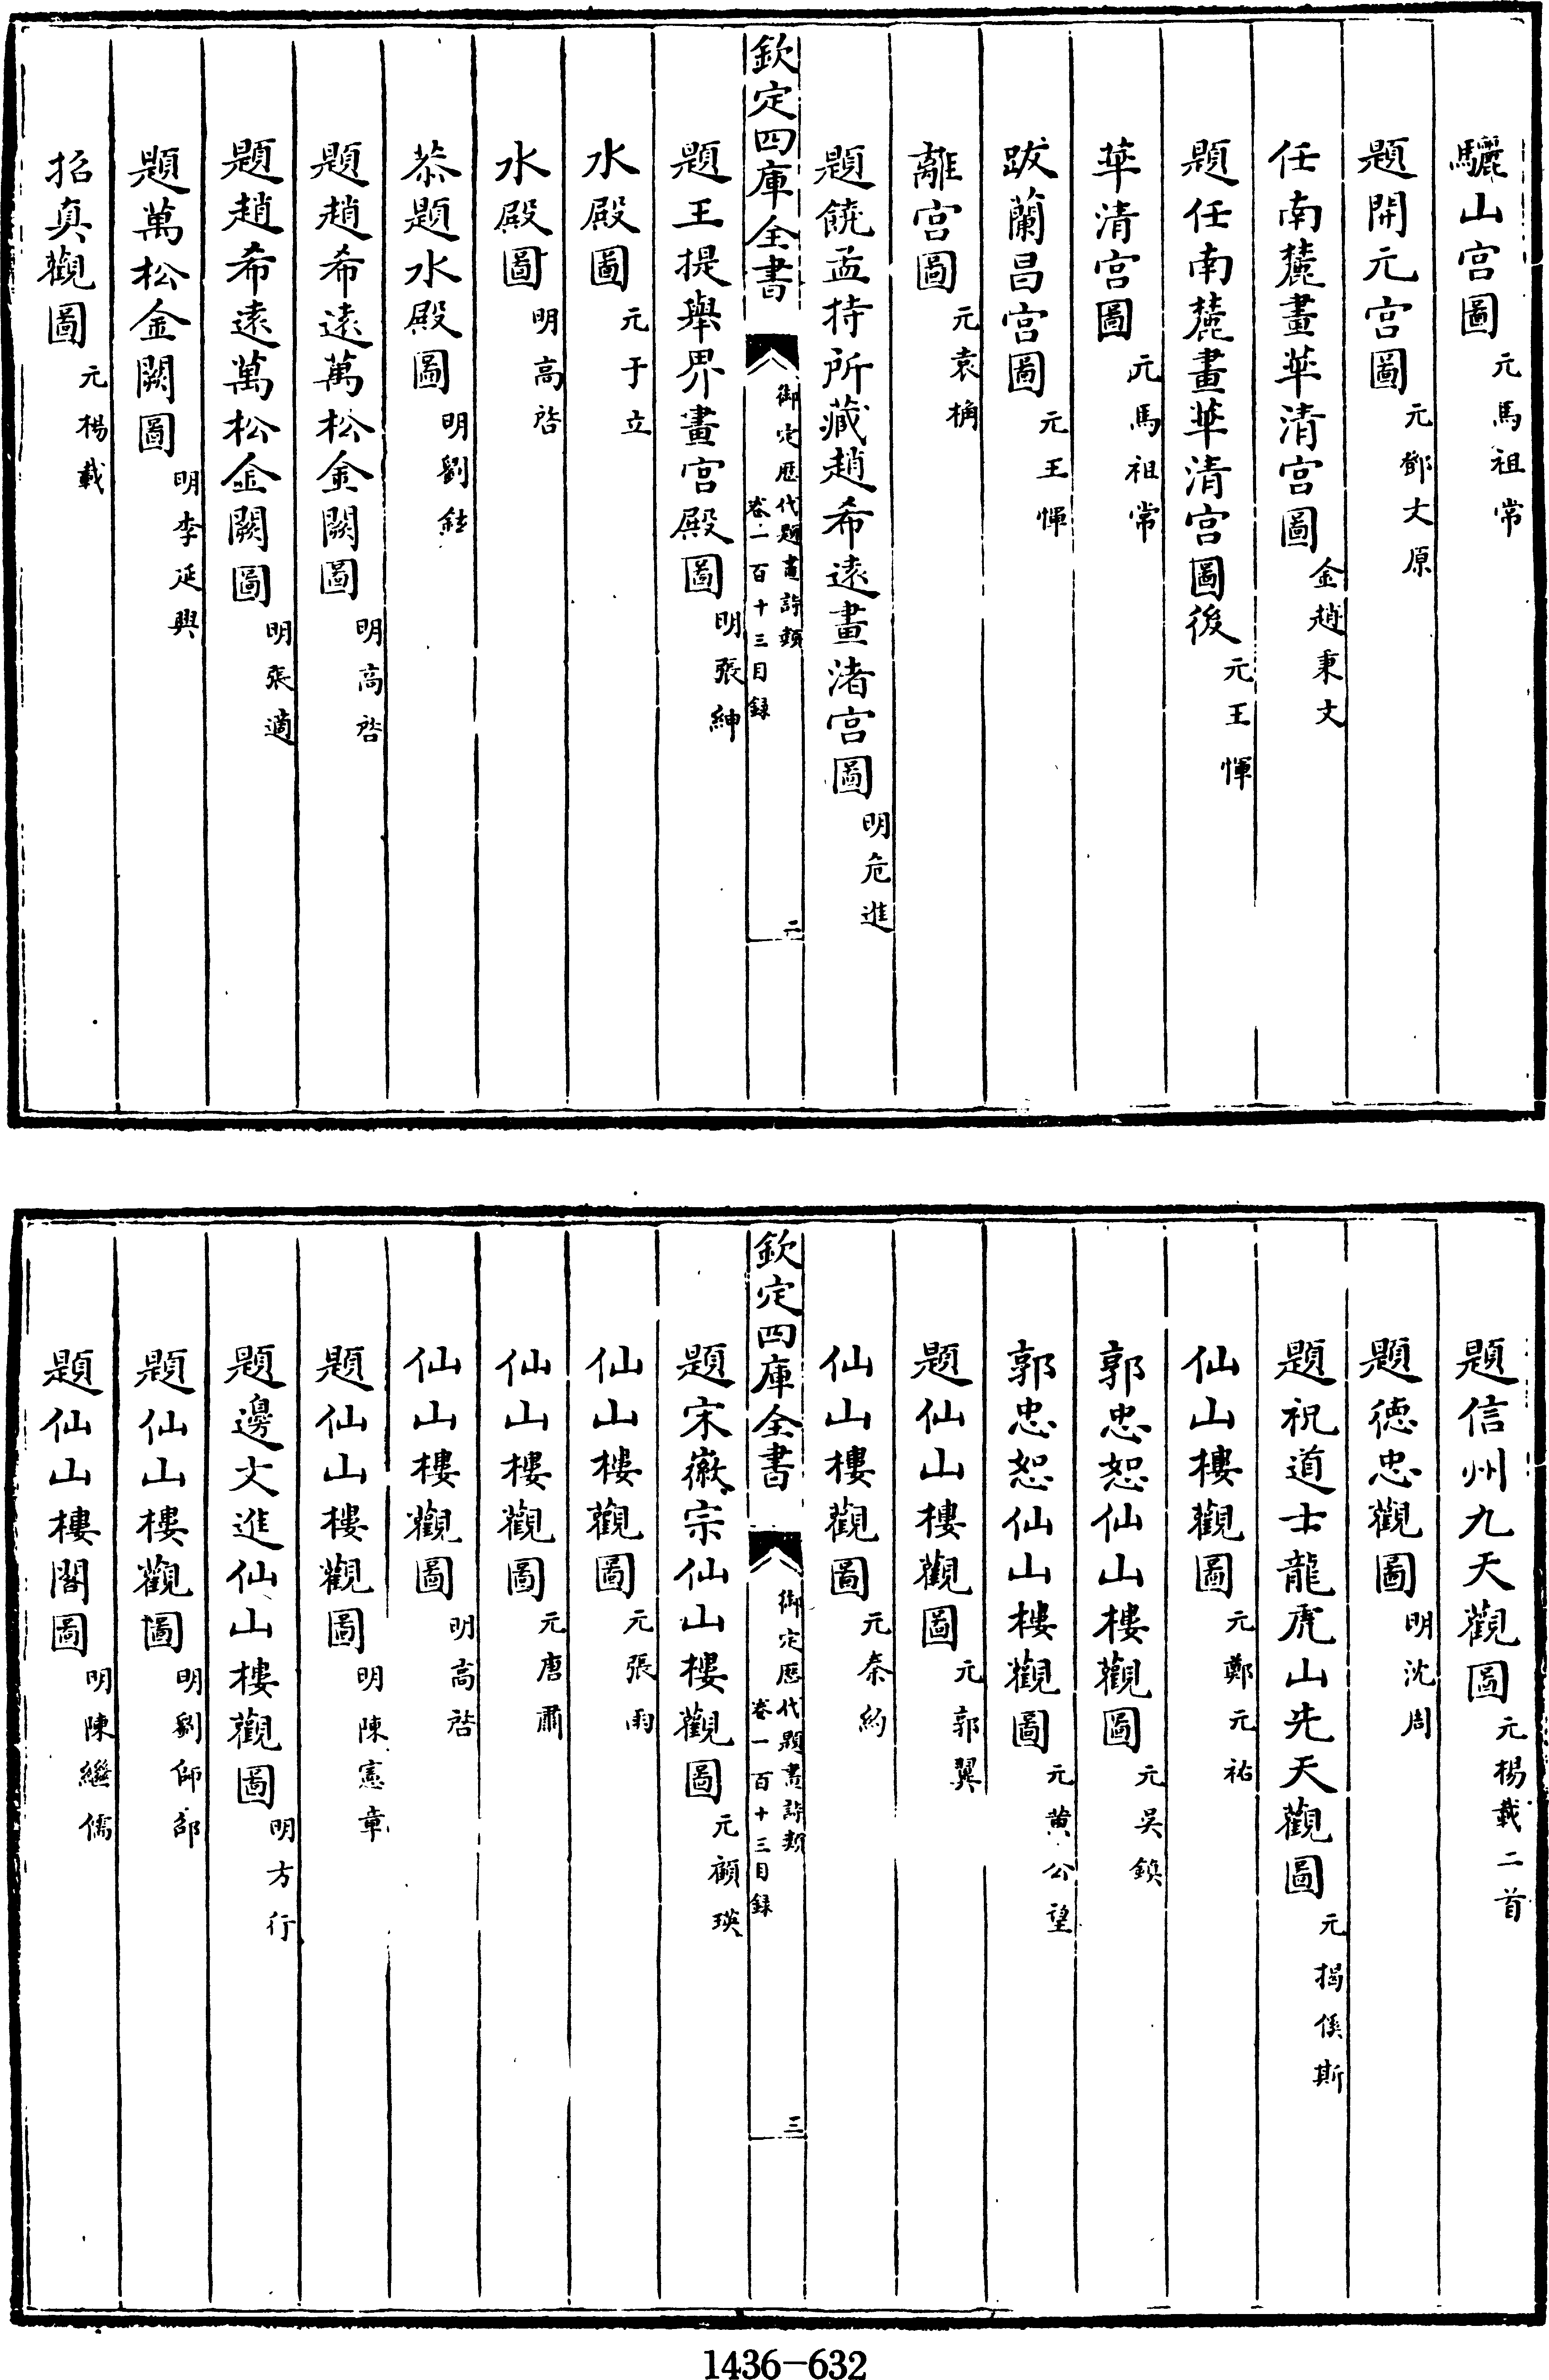 驪山宫圖元馬祖常
題開元宫圖元鄧文原
任南麓畫華清宫圖金趙秉文
題任南麓畫華清宫圖後元王惲
華清宫圖元馬祖常
跋蘭昌宫圖元王惲
離宫圖元袁桷
題饒孟持所藏趙希遠畫渚宫圖明危進
欽定四庫全書
御定歴代題畫詩類
卷一百十三目録
二
題王提舉界畫宫殿圖明張紳
水殿圖元于立
水殿圖明高啓
恭題水殿圖明劉鉉
題趙希遠萬松金闕圖明高啓
題趙希遠萬松金闕圖明張適
題萬松金闕圖明李延興
招真觀圖元楊載
題信州九天觀圖元楊載二首
題德忠觀圖明沈周
題祝道士龍虎山先天觀圖元揭傒斯
仙山樓觀圖元鄭元祐
郭忠恕仙山樓觀圖元吳鎮
郭忠恕仙山樓觀圖元黄公望
題仙山樓觀圖元郭翼
仙山樓觀圖元秦約
欽定四庫全書
御定歴代題畫詩類
卷一百十三目録
三
題宋徽宗仙山樓觀圖元顧瑛
仙山樓觀圖元張雨
仙山樓觀圖元唐肅
仙山樓觀圖明高啓
題仙山樓觀圖明陳憲章
題邊文進仙山樓觀圖明方行
題仙山樓觀圖明劉師邵
題仙山樓閣圖明陳繼儒
1436-632